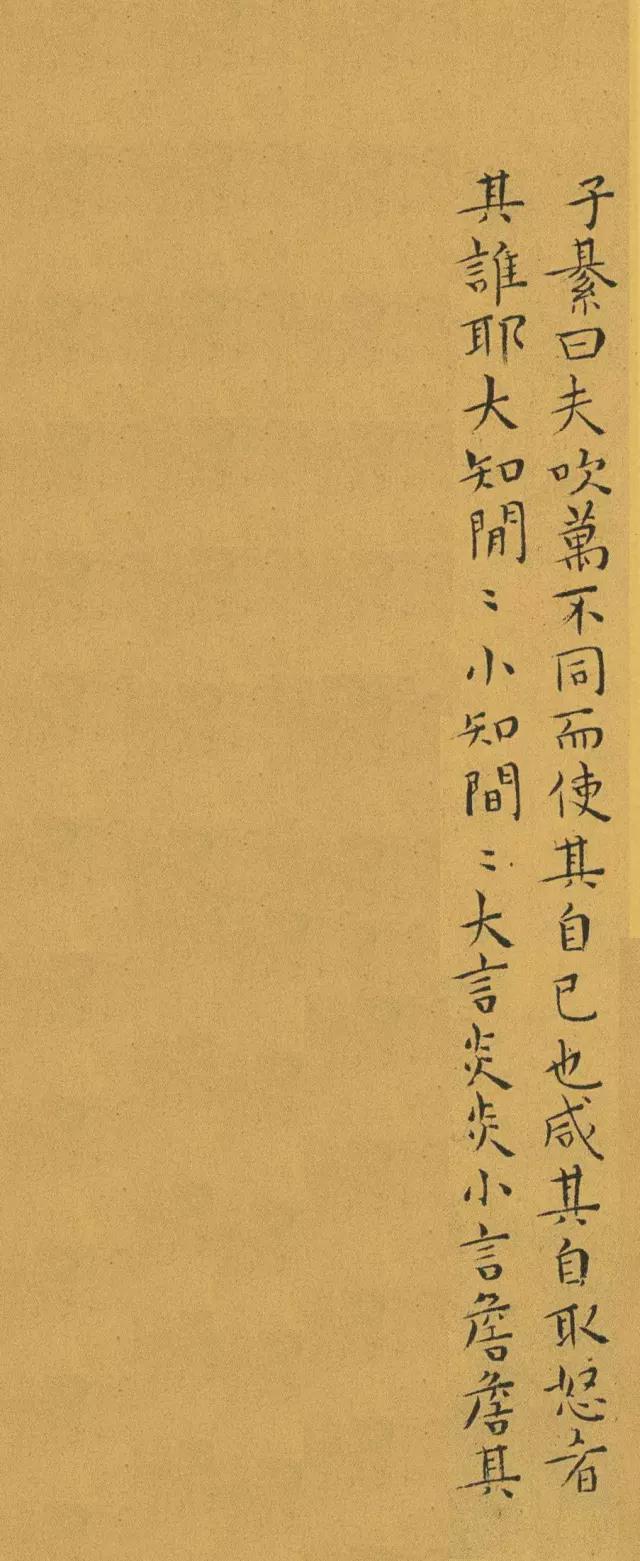 子綦曰夫吹萬不同而使其自已也咸其自取怒者
其誰耶大知閒〻小知間〻大言炎炎小言詹詹其